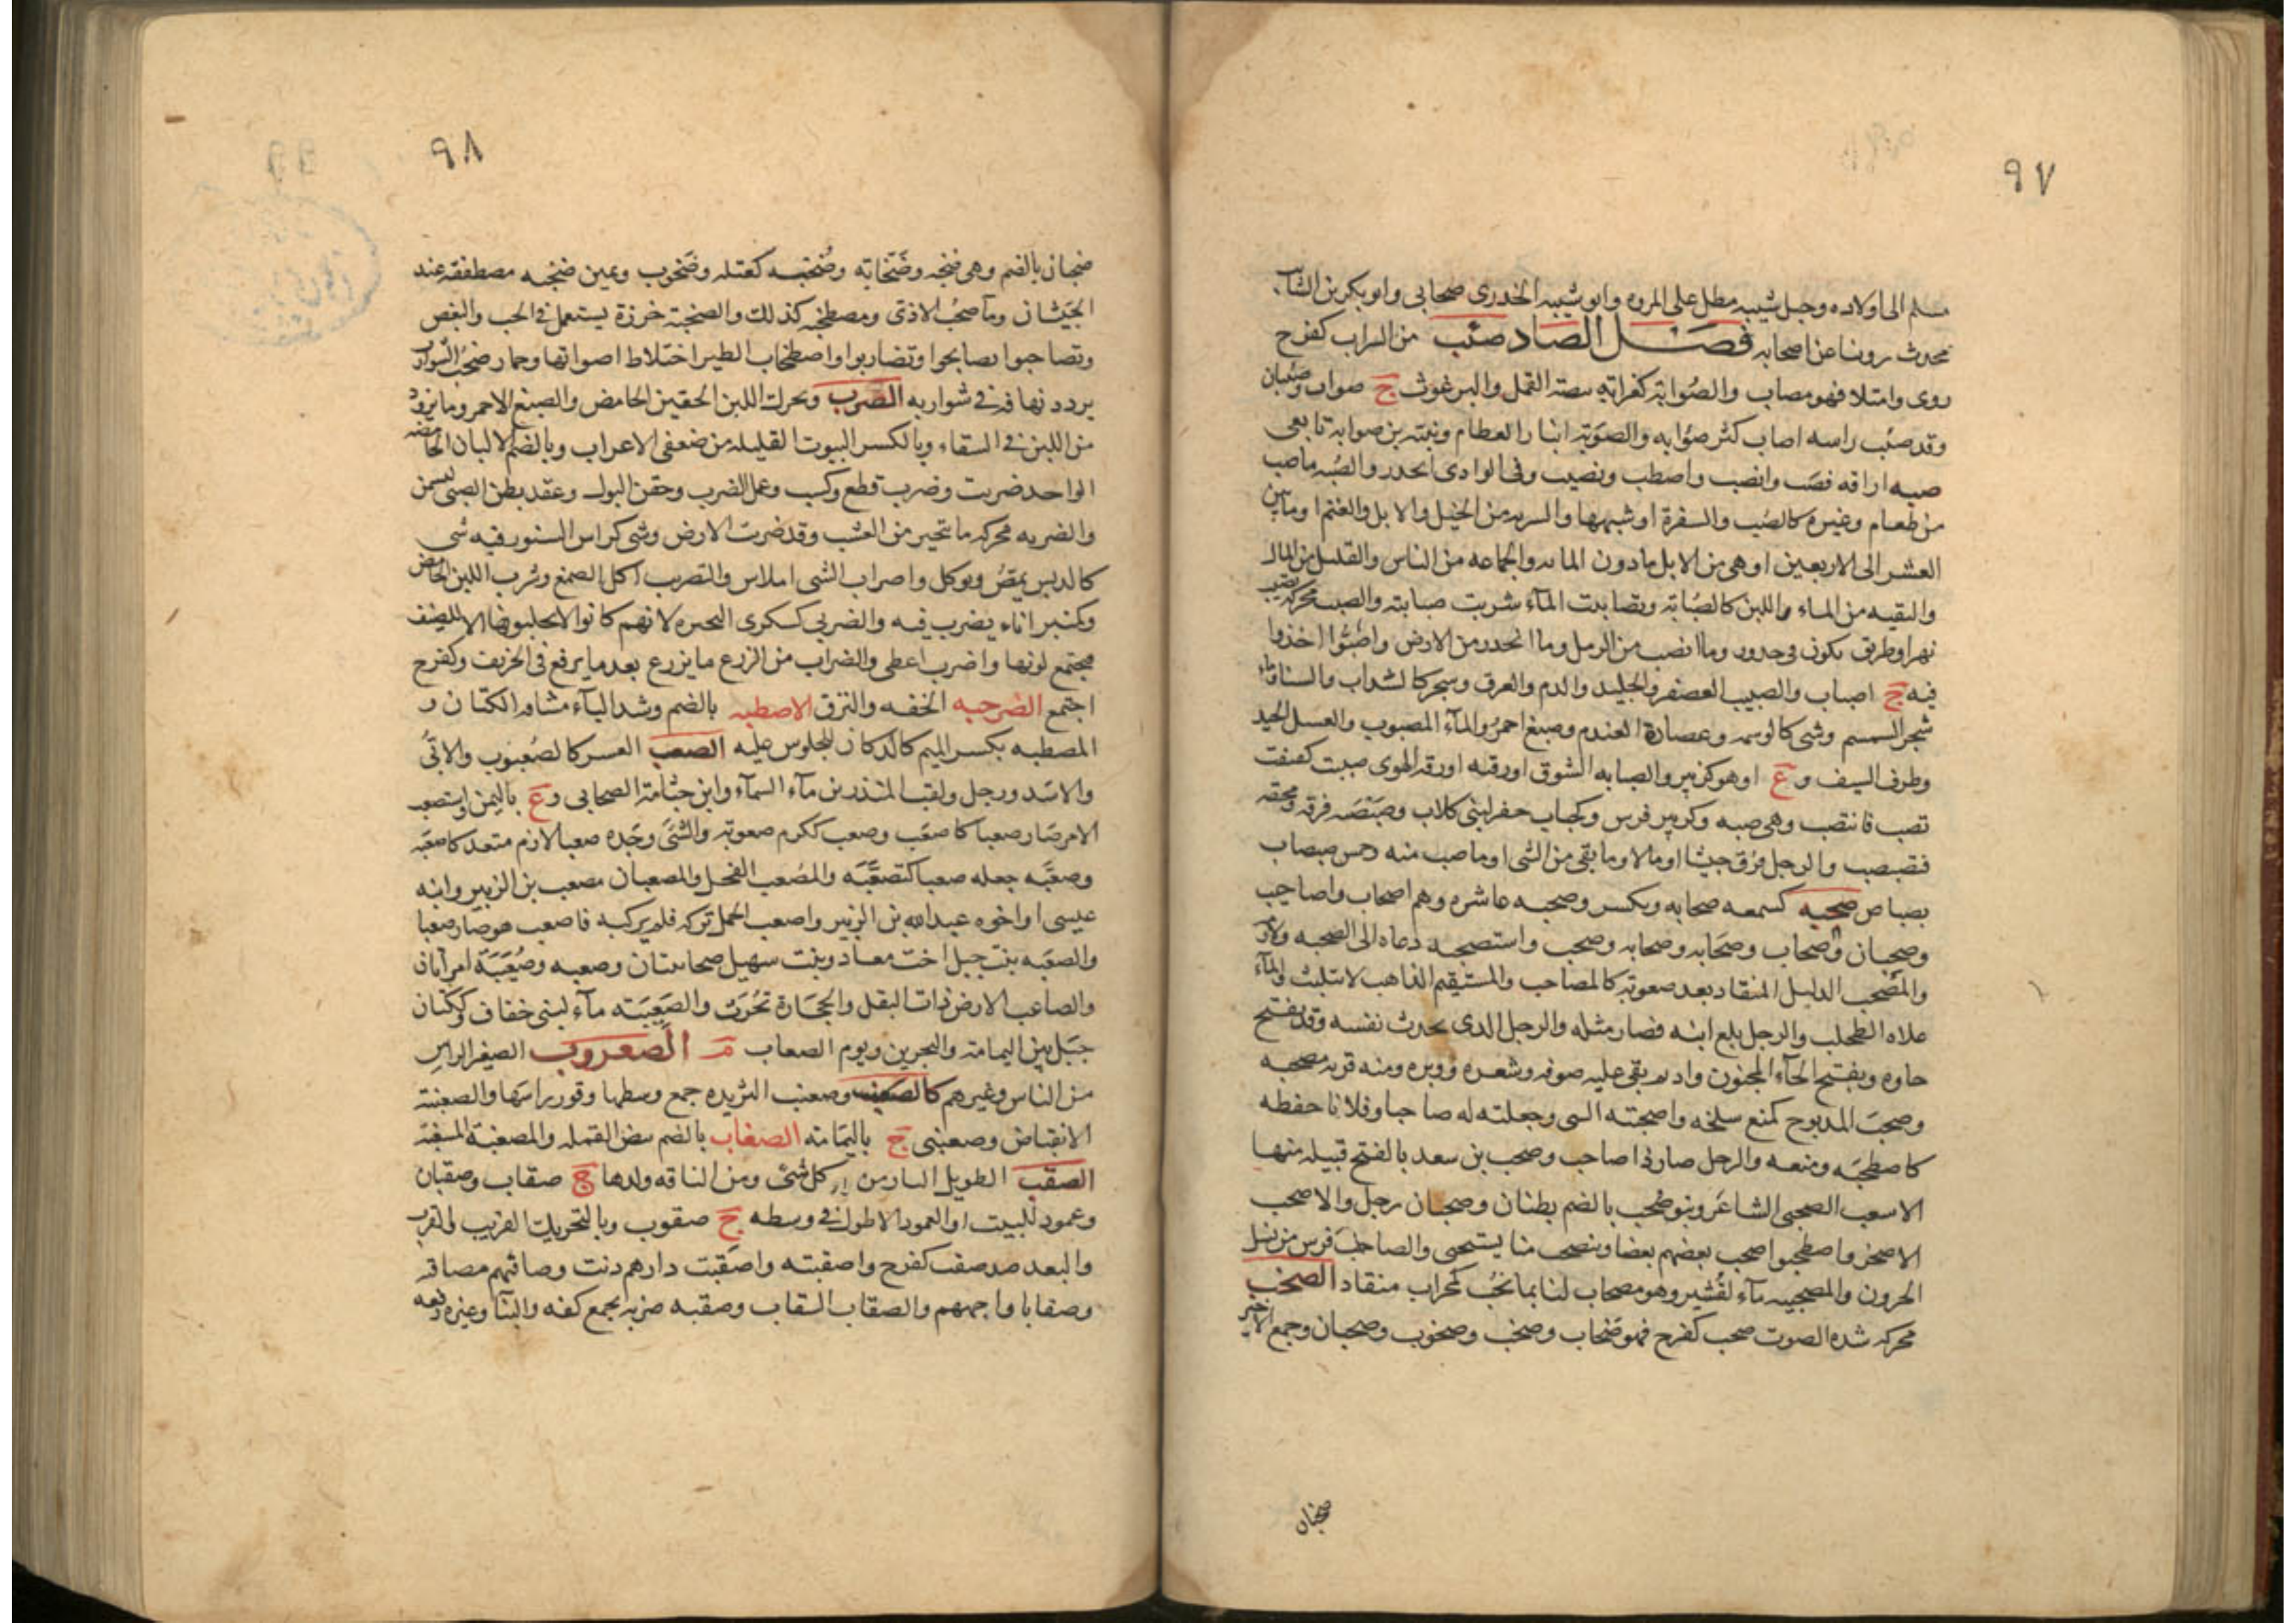 ٩٧
مسلم الى اولاده وجبل شيبه مطل على المروه وابو شيبه الخدرى صحابى وابو بكر بن الشائب
محدث روينا عن اصحابه فصل الصاد صئب من الشراب كفرح
روى وامتلا فهو مصاب والصُوابة كغرابة بيضة القمل والبرغوث ج صواب وصئبان
وقد صئب راسه اصاب كثر صؤابه والصوبة انبار الطعام ونبيه بن صوابة تابعى
صبه اراقه فصب وانصب واصطب وتصبب وفى الوادى انحدر والصُبه ما صب
من طعام وغيره كالصُب والسفرة او شبهها والسربه من الخيل والابل والغنم او ما بين
العشر الى الاربعين او هى من الابل ما دون المائه والجماعه من الناس والقليل من المال
والبقيه من الماء واللبن كالصُبابة وتصاببت المآء شربت صبابته والصبب محركة تصبب
نهر او طريق يكون فى حدور وما انصب من الرمل وما انحدر من الارض واصَبُّوا اخذوا
فيه ج اصباب والصبيب العصفر والجليد والدم والعرق وشجر كالسداب والسنا وماء
شجر السمسم وشى كالوسمه وعصارة العندم وصبغ احمر والمآء المصبوب والعسل الجيد
وطرف السيف و ع او هو كزبير والصبابه الشوق او رقته او رقه الهوى صببت كقنعت
تصب فانت صب وهى صبه وكزبير فرس وكجباب جفر لبنى كلاب وصبصبه فرقه ومحقه
فتصبصب والرجل فرق جيشا او مالا وما بقى من الشى او ما صب منه وخمس صبصاب
بصباص صحبه كسمعه صحابه ويكسر وصحبه عاشره وهم اصحاب واصاحيب
وصحبان وصِحاب وصَحَابه وصحابه وصحب واستصحبه دعاه الى الصحبه ولازمه
والمصحب الذليل المنقاد بعد صعوبة كالمصاحب والمستقيم الذاهب لا يتلبث والمآء
علاه الطحلب والرجل بلغ ابنه فصار مثله والرجل الذى يحدث نفسه وقد يفتح
حاوه وبفتح الحآء المجنون واديم بقى عليه صوفه وشعره ووبره ومنه قربه مصحبه
وصحب المذبوح كمنع سلخه واصحبته الشى وجعلته له صاحبا وفلانا حفظه
كاصطحبه ومنعه والرجل صار ذا صاحب وصحب بن سعد بالفتح قبيله منها
الاشعب الصحبى الشاعر وبنو صُحب بالضم بطنان وصحبان رجل والاصحب
الاصحر واصطحبوا صحب بعضهم بعضا ويتصحب منا يستحيى والصاحب فرس من نسل
الحرون والمصحبيه مآء لقُشير وهو مصحاب لنا بما نحُب كمحراب منقاد الصخب
محركه شده الصوت صخب كفرح فهو صَخاب وصخب وصخوب وصخبان وجمع الاخير
صخبان
٩٨
صخبان بالضم وهى صخبه وصَخَابه وصُخبه كعتله وصَخوب وعين صخبه مصطفقه عند
الجَيَشان ومآ صخِب الاذى ومصطخبه كذلك والصخبة خرزة يستعمل فى الحب والبغض
وتصاخبوا تصايحوا وتضاربوا واصطخاب الطير اختلاط اصواتها وحمار صخِبُ الشوارب
يردد نهاقه فى شواربه الصرب ويحرك اللبن الحقين الحامض والصبغ الاحمر وما يزود
من اللبن فى السقاء وبالكسر البيوت القليله من ضعفى الاعراب وبالضم الالبان الحامضه
الواحد ضريت وضرب قطع وكسب وعمل الضرب وحقن البول وعقد بطن الصبى ليسمن
والضربه محركه ما يتخير من العشب وقد ضربت الارض وشى كراس السنور فيه شى
كالدبس يمصُ ويوكل واصراب الشى املاس والتصريب اكل الصمغ وشرب اللبن الحامض
وكمنبر اناء يضرب فيه والضربى كسكرى البحيره لانهم كانوا لا يحلبونها الا للضيف
مجتمع لونها واضرب اعطى والضراب من الزرع ما يزرع بعد ما يرفع فى الخريف وكفرح
اجتمع الصرخبه الخفه والنزق الاصطبه بالضم وشد البآء مشاقه الكتان و
المصطبه بكسر الميم كالدكان للجلوس عليه الصعب العسر كالصُعبوب والابىُّ
والاسد ورجل ولقب المنذر بن مآء السمآء وابن جثامة الصحابى و ع باليمن واستصعب
الامر صار صعبا كاصعَب وصعب ككرم صعوبة والشَى وجَده صعبا لازم متعد كاصعَبه
وصعَّبه جعله صعبا كتصعَّبَه والمُصعب الفحل والمصعبان مصعب بن الزبير وابنه
عيسى او اخوه عبدالله بن الزبير واصعب الجمل تركه فلم يركبه فاصعب هو صار صعبا
والصعَبه بنت جبل اخت معاد وبنت سهيل صحابيتان وصعبه وصُعَيبَة امراتان
والصاعب الارض ذات البقل والحِجَارة تحُرَث والصَعِبيَة مآء لبنى خفاف وككتان
جبَل بين اليمامة والبحرين ويوم الصعاب م الصعروب الصغير الراس
من الناس وغيرهم كالصعنب وصعنب الثريده جمع وسطها وقور راسَها والصعنبة
الانقباض وصعنبى ج باليمَامة الصغاب بالضم بيض القمله والمصغبة المسغبة
الصقب الطويل التار من كل شئ ومن الناقه ولدها ج صقاب وصقبان
وعمود للبيت او العمود الاطول فى وسطه ج صقوب وبالتحريك القريب والقرب
والبعد ضد صقبت كفرح واصقبته واصقَبت دارهم دنت وصاقبهم مصاقبة
وصقابا واجههم والصقاب السقاب وصقبه ضربه بجمع كفه والبنا وغيره رفعه